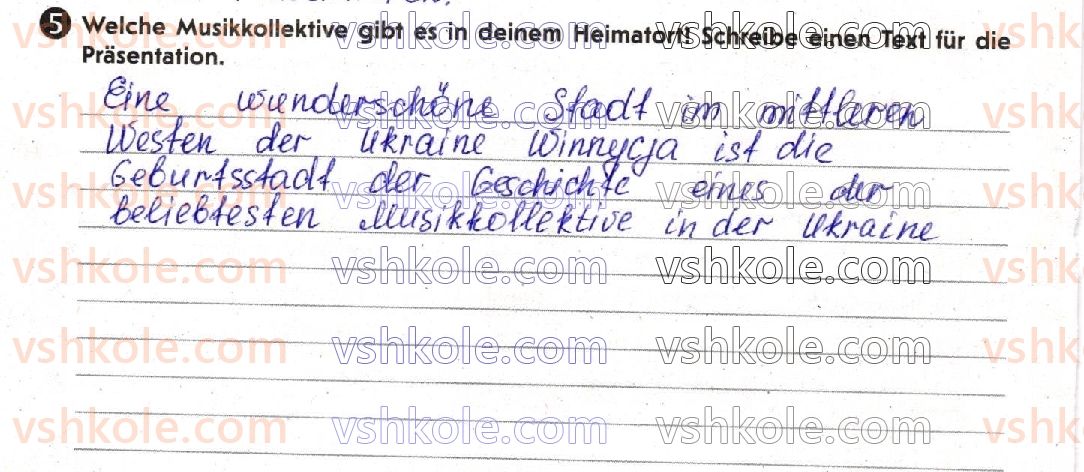 5 Welche Musikkollektive gibt es in deinem Heimatort? Schreibe einen Text für die
Präsentation.
Eine wunderschöne Stadt im mittleren
Westen der Ukraine Winnycja ist die
Geburtsstadt der Geschichte eines der
beliebtesten Musikkollektive in der Ukraine
vshkole.com vshkole.com vshkole.com vshk
vshkole.com vshkole.com vshkole.com vshk
vshkole.com vshkole.com vshkole.com vshk
vshkole.com vshkole.com vshkole.com vshk
vshkole.com vshkole.com vshkole.com vshk
vshkole.com vshkole.com vshkole.com vshk